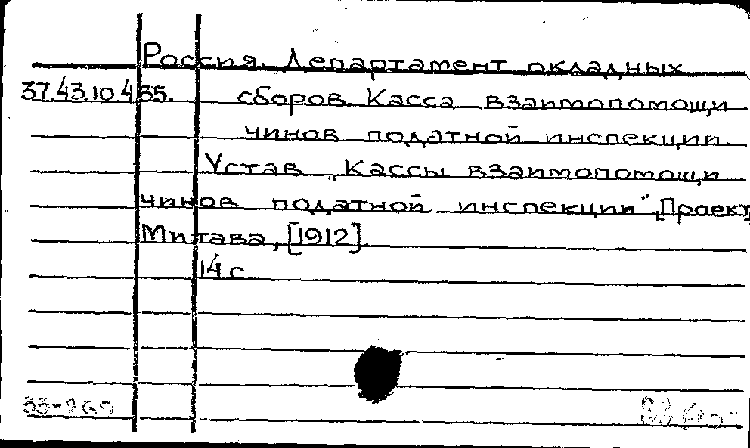 Россия. Департамент окладных
37.43.10.435. сборов. Касса взаимопомощи
чинов податной инспекции.
Устав „Кассы взаимопомощи
чинов податной инспекции". [Проект
Митава, [1912].
14 с.